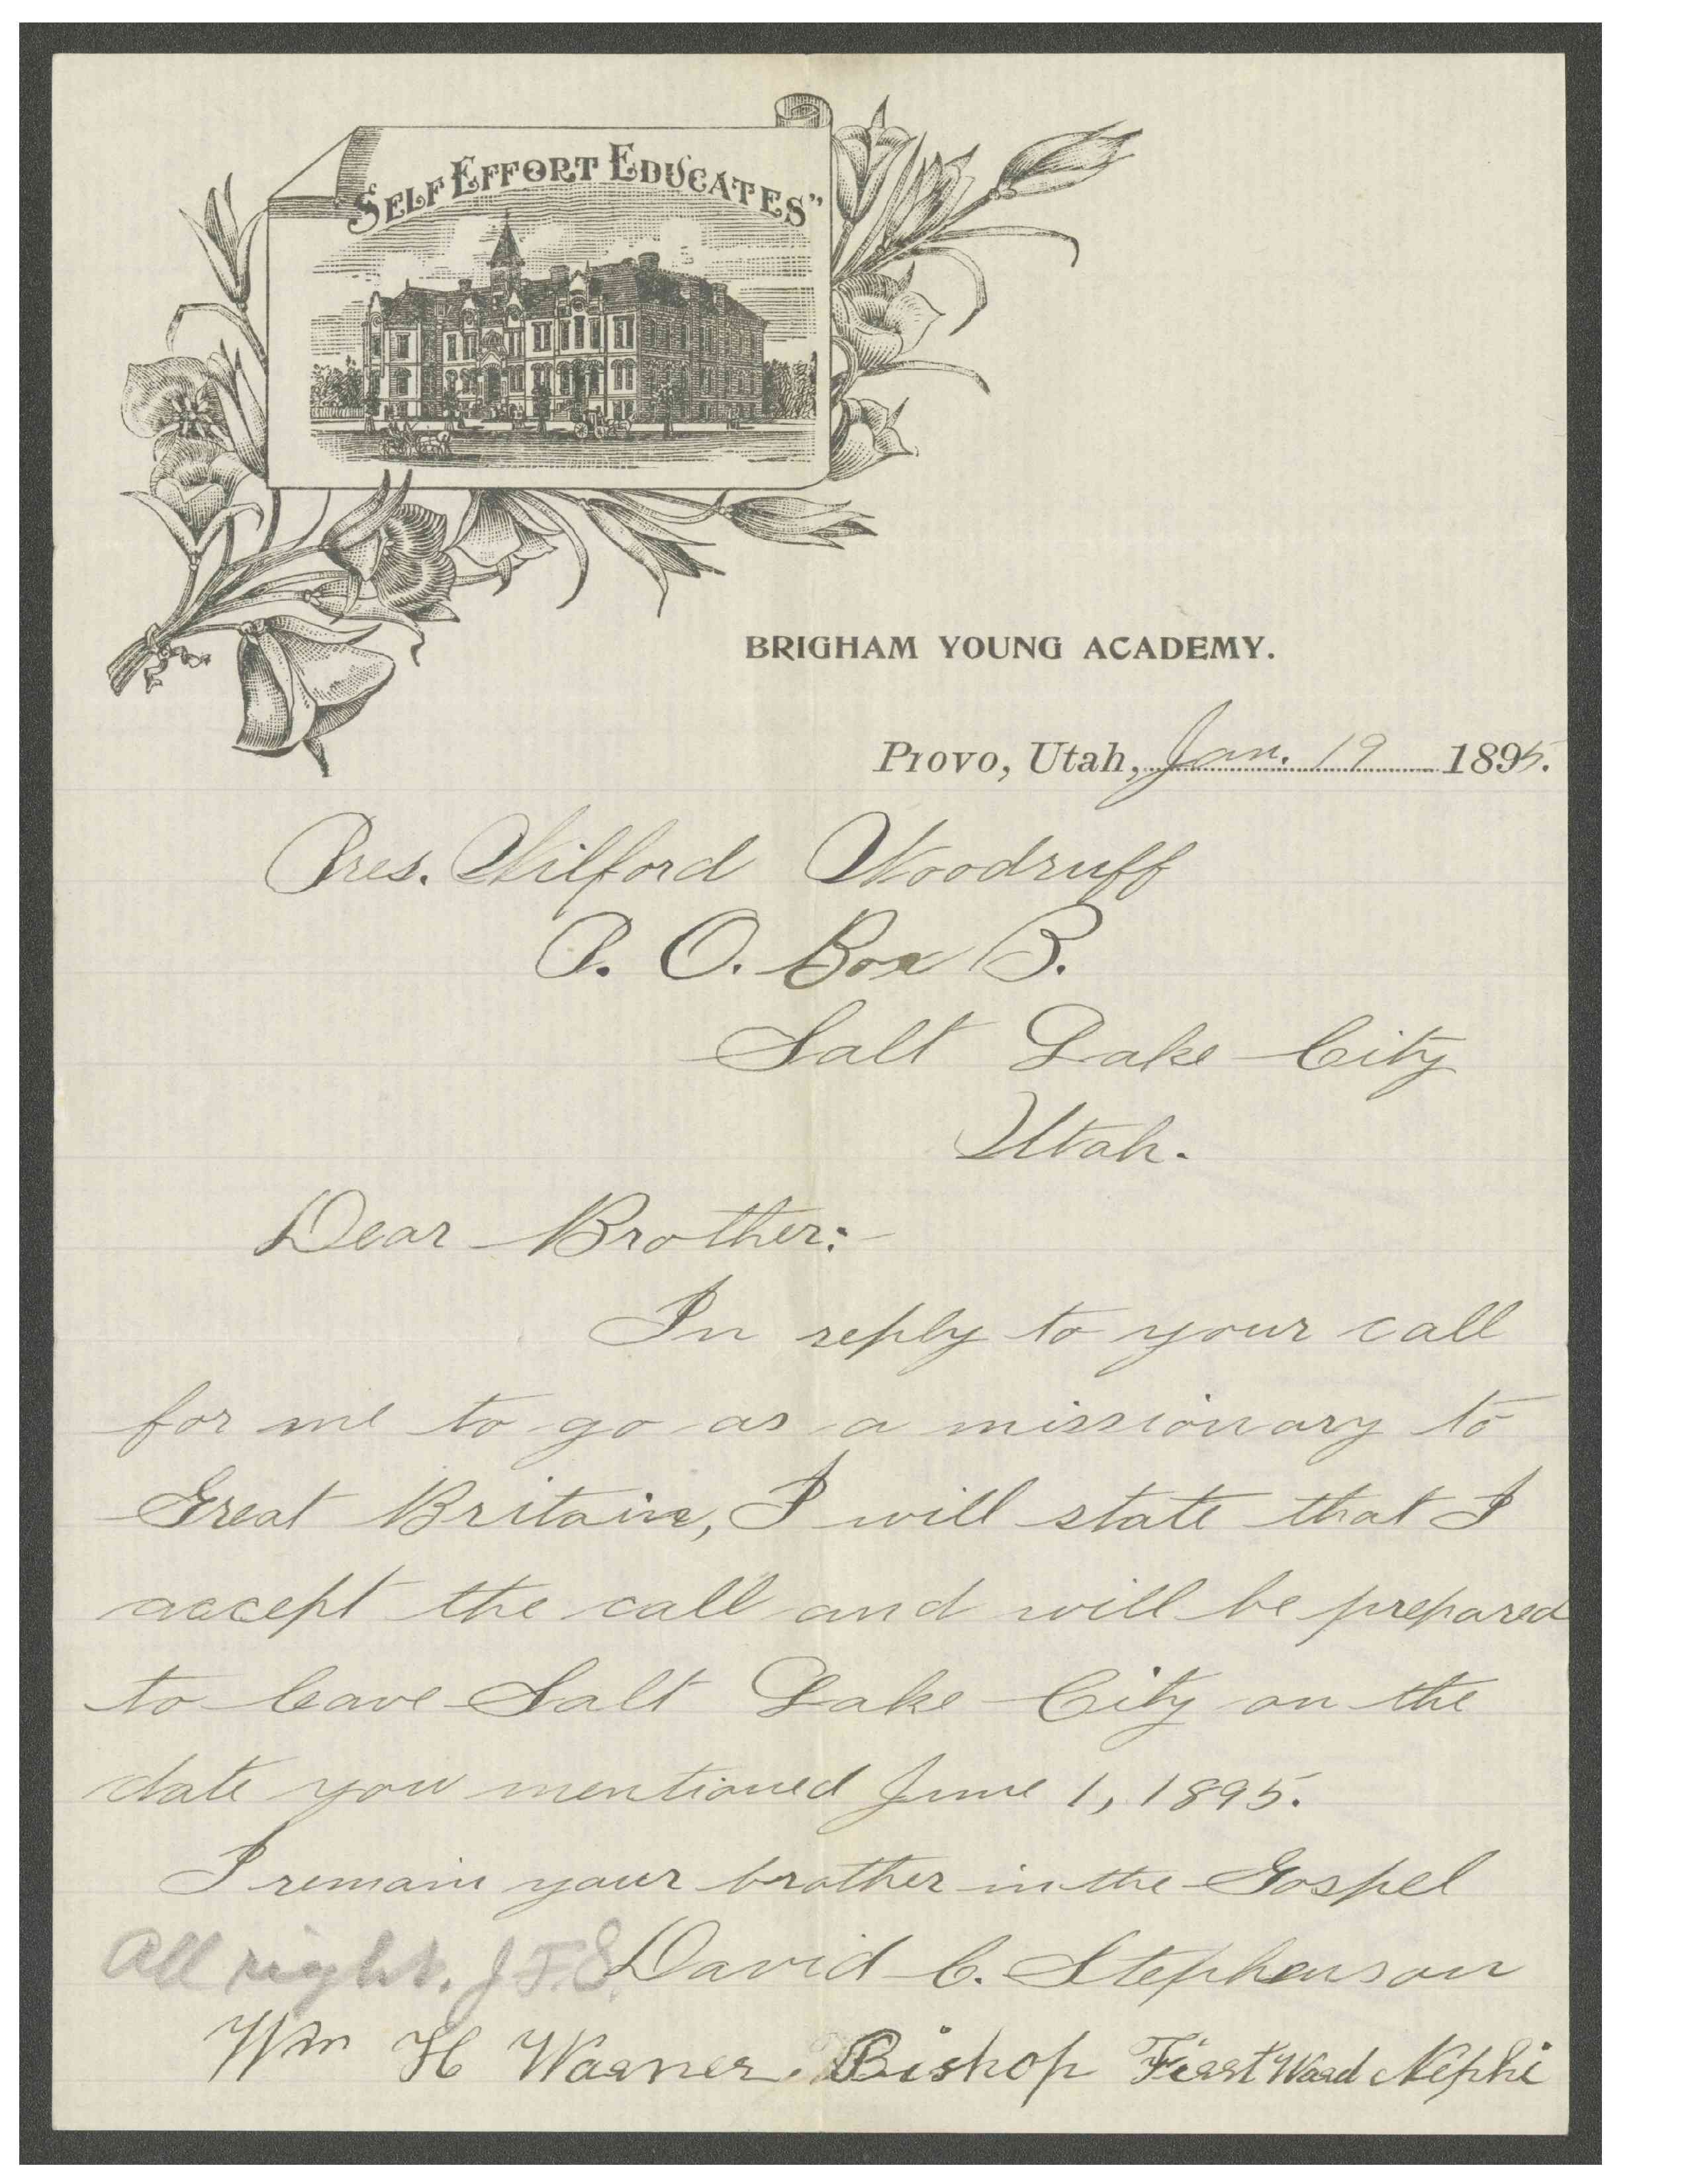 "SELF EFFORT EDUCATES"
BRIGHAM YOUNG ACADEMY.
Provo, Utah, Jan. 19 1895.
Pres. Wilford Woodruff
P. O. Box B.
Salt Lake City
Utah.
Dear Brother:-
In reply to your call
for me to go as a missionary to
Great Britain, I will state that I
accept the call and will be prepared
to leave Salt Lake City on the
date you mentioned June 1, 1895.
I remain your brother in the Gospel
All right. J.F.S. David C. Stephenson
Wm H Warner. Bishop First Ward Nephi